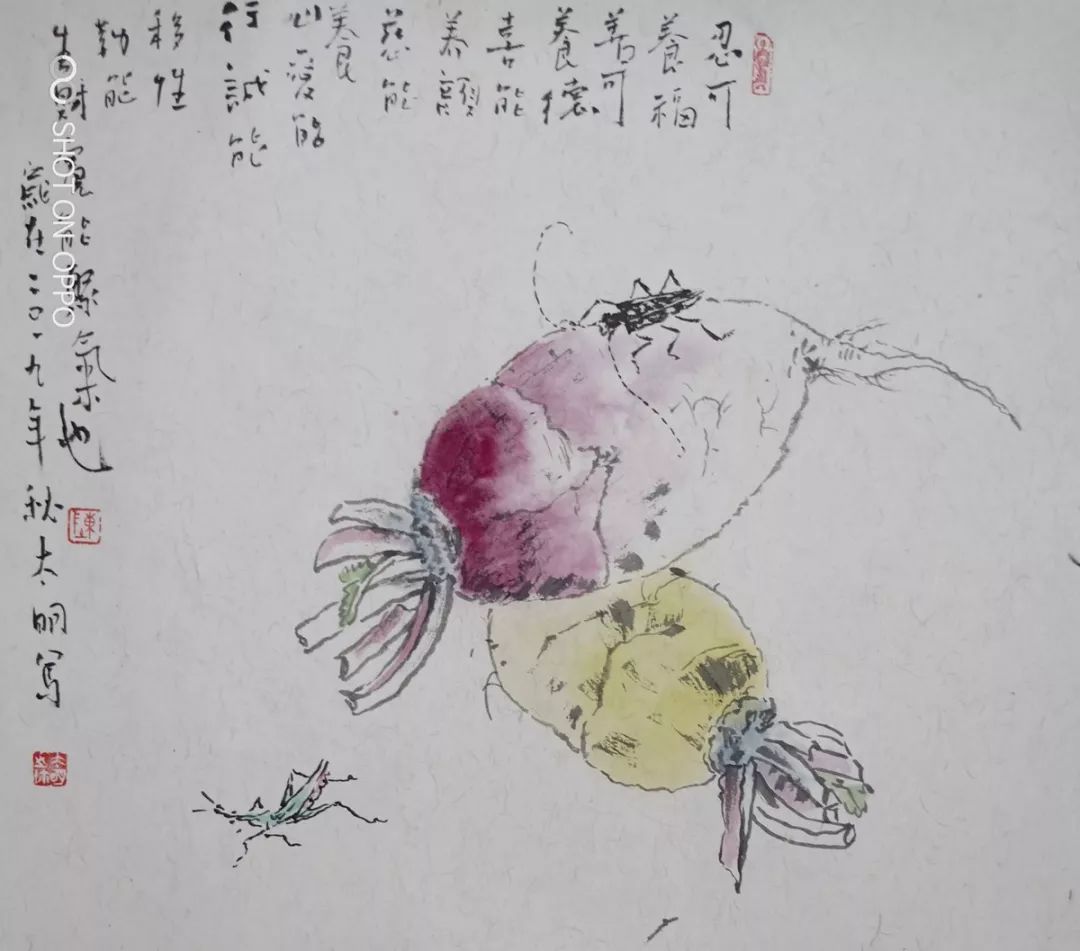 忍可
養福
善可
養德
喜能
养顔
慈能
養
心愛能
行誠能
移性
勤能
生財寬能聚氣也
歲在二〇一九年秋大明写
陳
SHOT ON OPPO